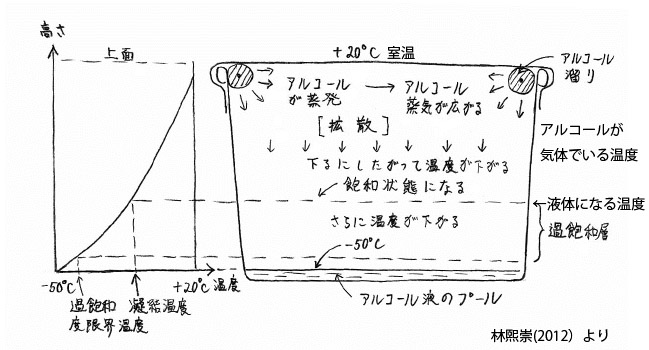 高さ
上面
+20°C 室温
アルコール
溜り
アルコール
が蒸発
アルコール
蒸気が広がる
[拡散]
アルコールが
気体でいる温度
下るにしたがって温度が下がる
飽和状態になる
液体になる温度
さらに温度が下がる
過飽和層
-50°C
-50°C
+20°C
温度
過飽和
度限界温度
凝結温度
アルコール液のプール
林熙崇(2012) より